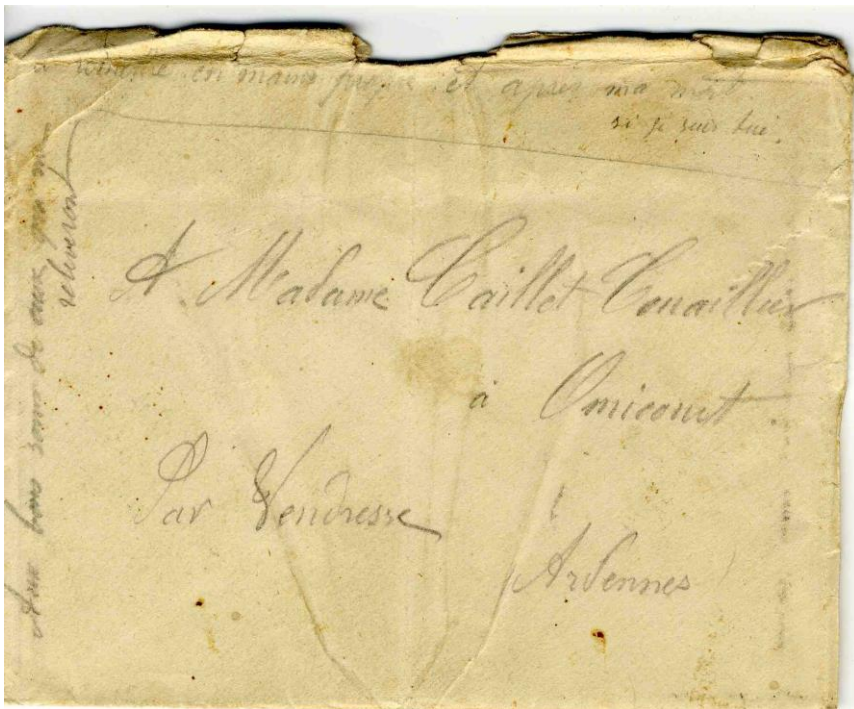 à remettre en main propre et après ma mort
si je suis tué.
Aux bons soins de ceux qui me
relèveront
A Madame Caillet-Tenaillier
à Omicourt
Par Vendresse
Ardennes